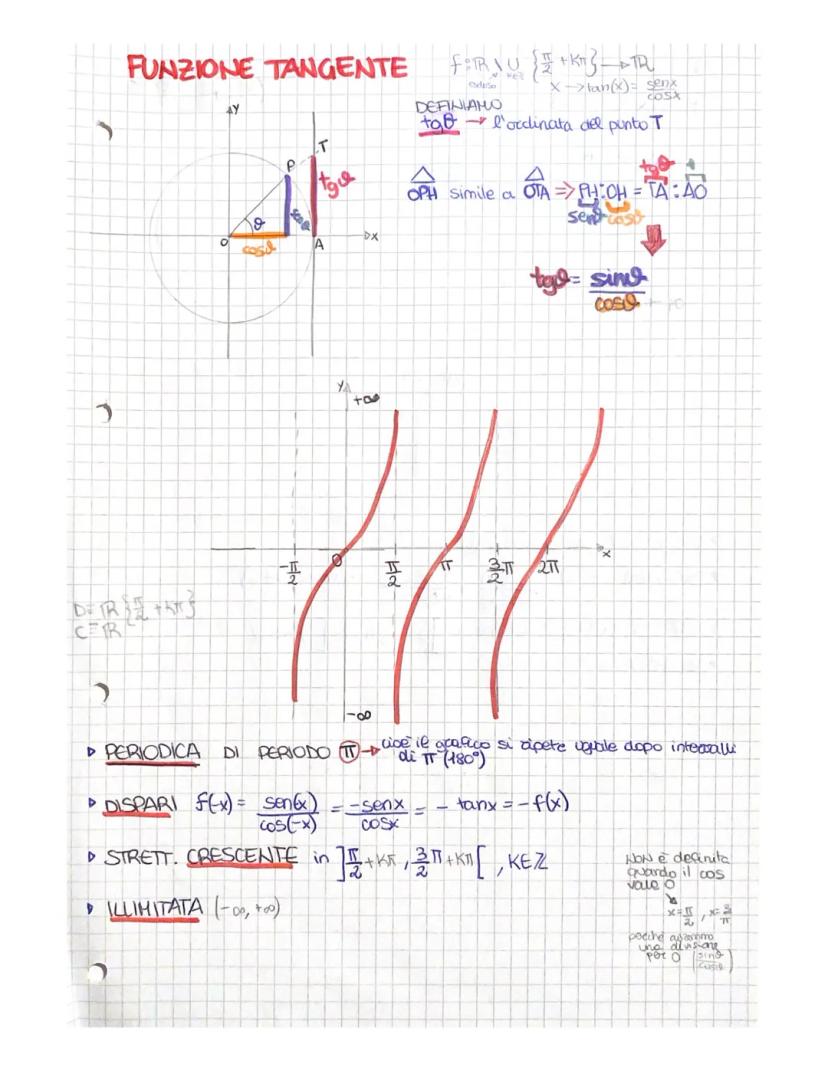 FUNZIONE TANGENTE
f: ℝ \ ∪ {π/2 + Kπ} → ℝ
K∈ℤ
escluso
x → tan(x) = senx/cosx
DEFINIAMO
tgθ → l'ordinata del punto T
y
T
P
tgθ
senθ
θ
O
cosθ
A
x
tgθ 1
OPH simile a OTA => PH:OH = TA:AO
senθ cosθ
tgθ = sinθ/cosθ
y
+∞
-π/2 0 π/2 π 3/2 π 2π x
D= ℝ {π/2 + Kπ}
C= ℝ
-∞
PERIODICA DI PERIODO π → cioè il grafico si ripete uguale dopo intervalli
di π (180°)
DISPARI f(-x) = sen(-x)/cos(-x) = -senx/cosx = - tanx = -f(x)
STRETT. CRESCENTE in ]π/2 + Kπ, 3/2 π + Kπ[ , K∈ℤ
ILLIMITATA (-∞, +∞)
NON è definita
quando il cos
vale 0
x=π/2, x=3/π
poichè avremmo
una divisione
per 0 (sinθ/cosθ)